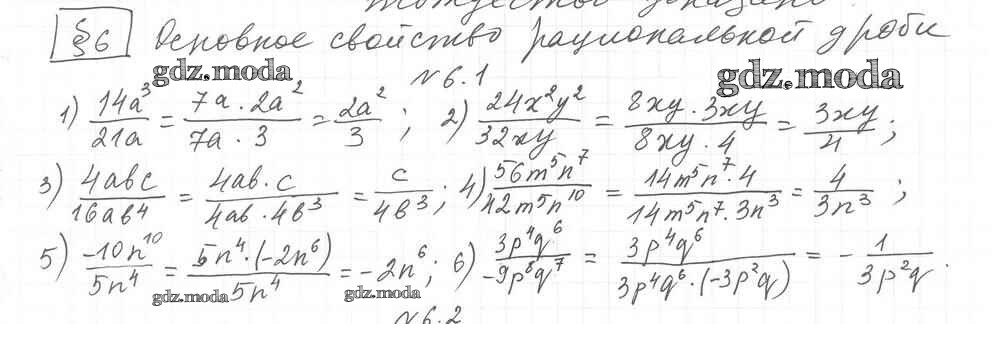 тождество доказано.
§6 Основное свойство рациональной дроби
gdz.moda
gdz.moda
№6.1
1) 14a³/21a = 7a·2a²/7a·3 = 2a²/3; 2) 24x²y²/32xy = 8xy·3xy/8xy·4 = 3xy/4;
3) 4abc/16ab⁴ = 4ab·c/4ab·4b³ = c/4b³; 4) 56m⁵n⁷/42m⁵n¹⁰ = 14m⁵n⁷·4/14m⁵n⁷·3n³ = 4/3n³;
5) -10n¹⁰/5n⁴ = 5n⁴·(-2n⁶)/5n⁴ = -2n⁶; 6) 3p⁴q⁶/-9p⁶q⁷ = 3p⁴q⁶/3p⁴q⁶·(-3p²q) = -1/3p²q.
gdz.moda
gdz.moda
№6.2